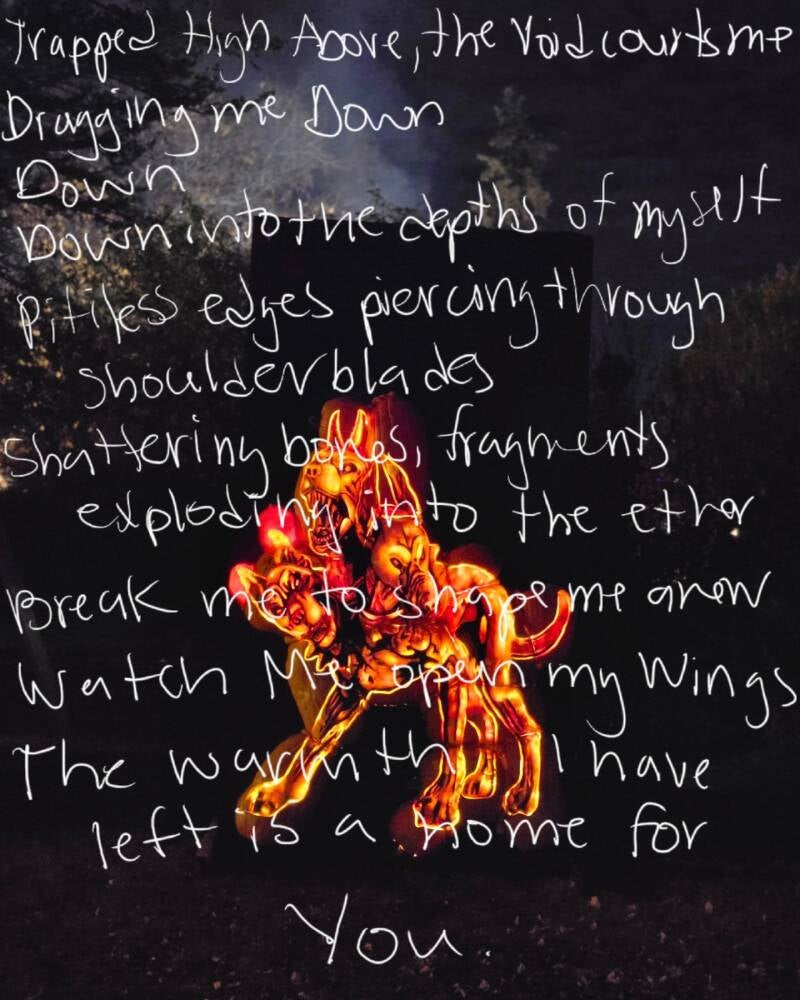 Trapped High Above, the Void courts me
Dragging me Down
Down
Down into the depths of myself
Pitiless edges piercing through
shoulderblades
Shattering bones, fragments
exploding into the ether
Break me to shape me anew
Watch Me open my Wings
The warmth I have
left is a home for
You.